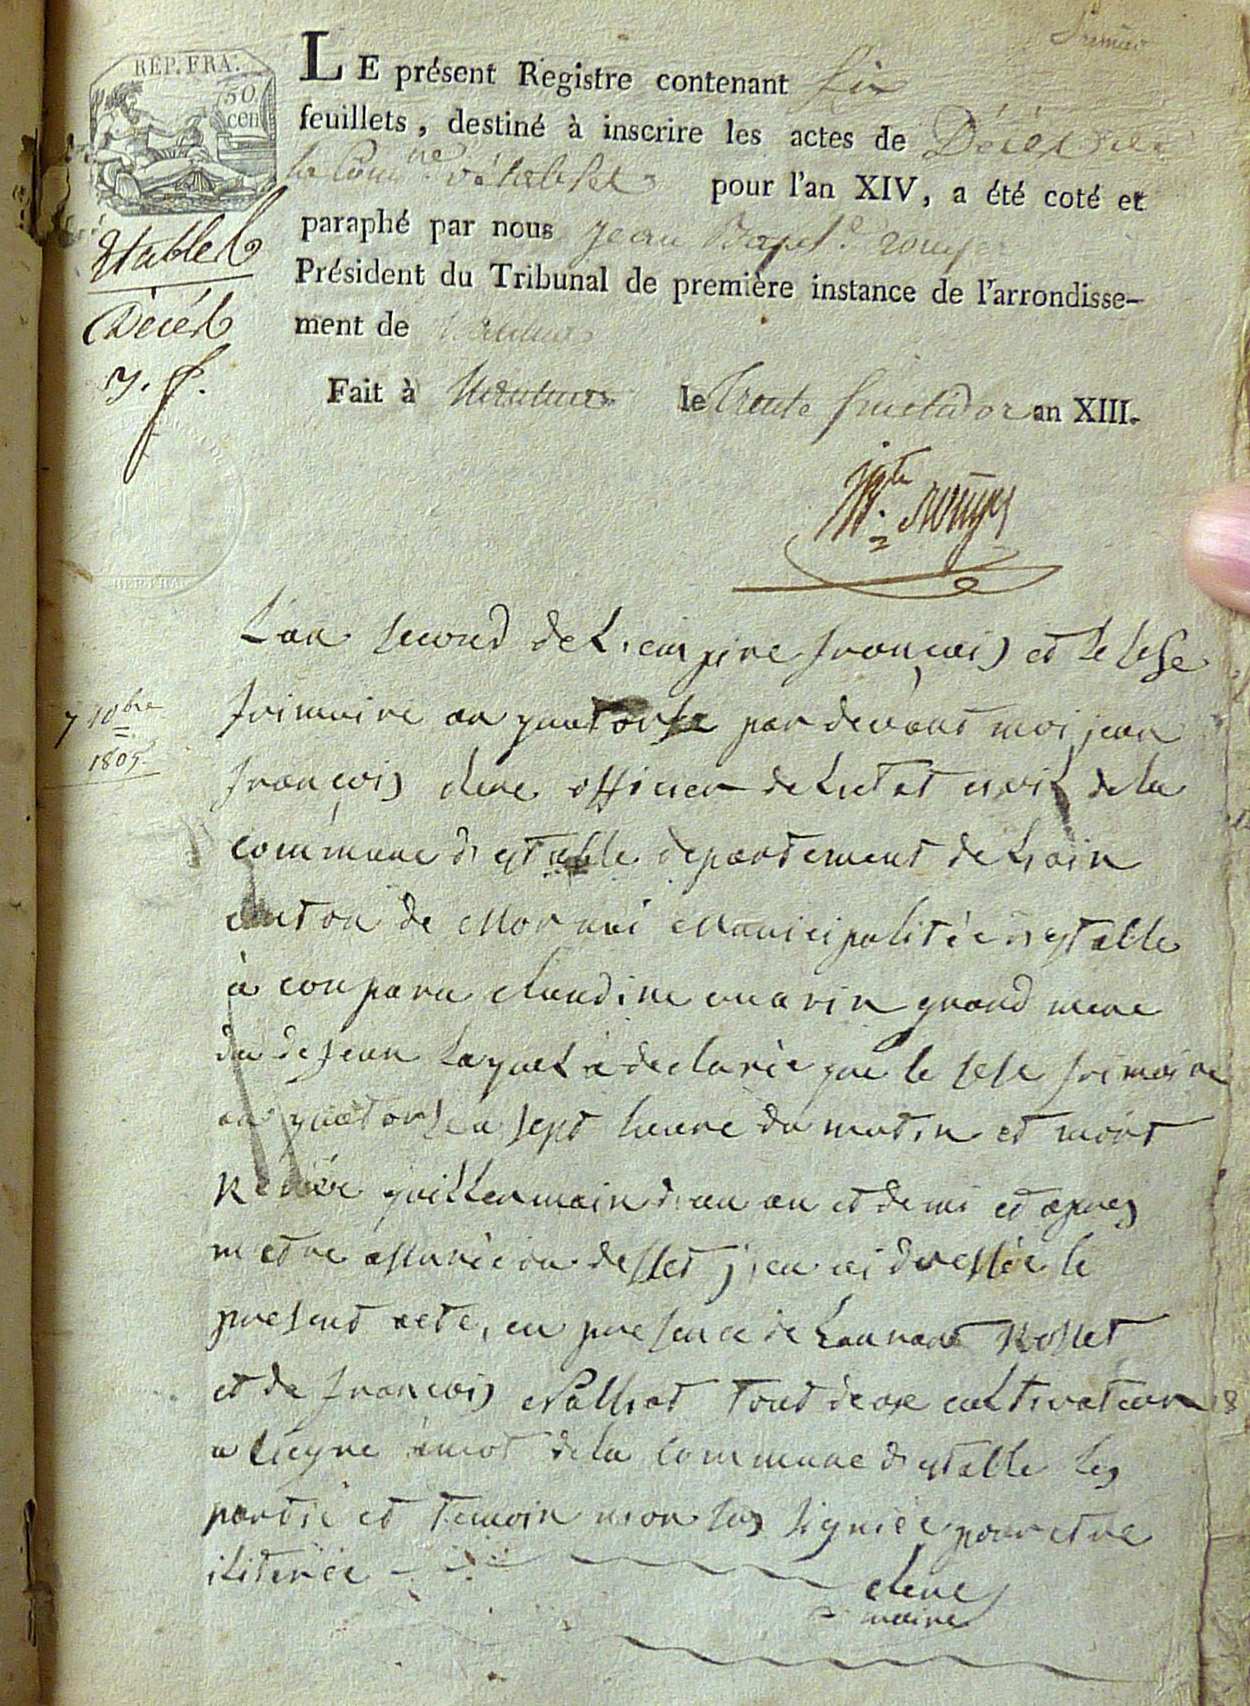 Premier
REP. FRA.
50
cen
LE présent Registre contenant six
feuillets, destiné à inscrire les actes de Décès de
la Com.ne d'étables pour l'an XIV, a été coté et
paraphé par nous jean Bapt.e rouyer
Président du Tribunal de première instance de l'arrondisse-
ment de Nantua
Fait à Nantua le Trente fructidor an XIII.
Étables
Décès
J.te rouyer
REP. FRA.
L'an second de L'empire françois et le sese
frimaire an quatorse par devant moi jean
7 10bre
1805
françois clerc officier de Lietat civil de la
commune d'estable departement de L'ain
canton de cernai Municipalité d'estable
à conparu claudine marin grand mere
du de jean que le sese frimaire
an quatorse a sept heure du matin et mort
guillermain d'un an et demi et apres
metre assurée du desset j'en ai dressée le
present acte, en presence de Laurant Rosset
et de françois tout deux cultivateur
a amot de la commune d'estable les
partie et temoin non sus signiée pour etre
iliterée
clerc
maire